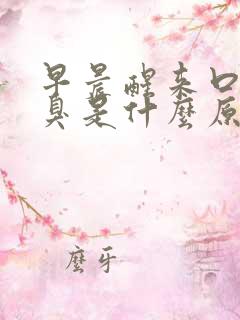 早晨醒来口
臭是什麼原
麼牙